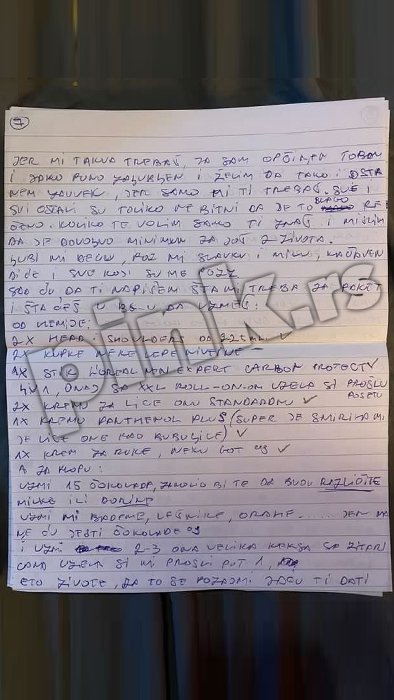 7
JER MI TAKVA TREBAŠ, JA SAM OPČINJEN TOBOM
I JAKO PUNO ZALJUBLJEN I ŽELIM DA TAKO I OSTA
NEM ZAUVEK, JER SAMO MI TI TREBAŠ. SVE I
SVI OSTALI SU TOLIKO NEBITNI DA JE TO BLAGO RE
ČENO. KOLIKO TE VOLIM SAMO TI ZNAŠ I MISLIM
DA JE DOVOLJNO MINIMUM ZA JOŠ 2 ŽIVOTA.
LJUBI MI DECU, POZ MI SLAVKU I MIKU,
BIĆE I SVE KOJI SU ME
SAD ĆU DA TI NAPIŠEM ŠTA MI TREBA ZA PAKET
I ŠTA ĆEŠ U DA UZMEŠ:
OD HEMIJE:
2X HEAD SHOULDERS OD
2X KUPKE NEKE LEPE NIVEINE
1X STIK L'OREAL MEN EXPERT CARBON PROTECT ✓
4U1, ONAJ SA XXL ROLL-ON-ON UZELA SI PROŠLU
POSETU
2X KREMU ZA LICE ONU STANDARDNU ✓
1X KREMU PANTHENOL PLUS (SUPER JE SMIRILA MI
JE LICE ONE KAO BUBULJICE) ✓
1X KREM ZA RUKE, NEKU ✓
A ZA KLOPU:
UZMI 15 ČOKOLADA, ZAMOLIO BI TE DA BUDU RAZLIČITE
MILKE ILI DORINE
UZMI MI BADEME, LEŠNIKE, ORAHE...... JER NA
NE ĆU JESTI ČOKOLADE
I UZMI 2-3 ONA VELIKA KEKSA SA ŽITARI
CAMA UZELA SI MI PROŠLI PUT 1,
ETO ŽIVOTE, ZA TO SE POZAJMI JA ĆU TI DATI
pink.rs